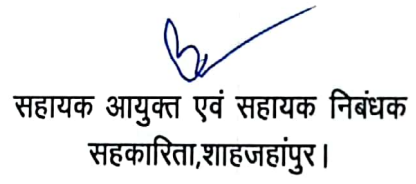 सहायक आयुक्त एवं सहायक निबंधक
सहकारिता,शाहजहांपुर।